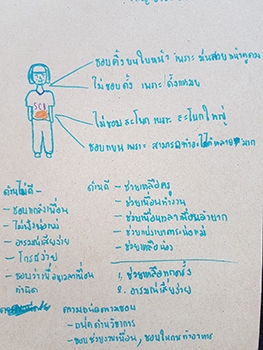 ชอบคิ้วบนใบหน้า เพราะ มันสวย
ไม่ชอบดั้ง เพราะ ดั้งแหมบ
SCK
ไม่ชอบสะโพก เพราะ สะโพกใหญ่
ชอบแขน เพราะ สามารถทำอะไรได้หลายมาก
ด้านไม่ดี -
- ชอบแกล้งเพื่อน
- ไม่ฟังพ่อแม่
- อารมณ์เสียง่าย
- โกรธง่าย
- ชอบว่าเพื่อน
ด้านดี - ช่วยเหลือครู
- ช่วยเพื่อนทำงาน
- ช่วยเพื่อนเวลาเพื่อนลำบาก
- ช่วยแบ่งเบาภาระพ่อแม่
- ช่วยเหลือน้อง
1. ช่วยเหลือทุกครั้ง
2. อารมณ์เสียง่าย
ความถนัดความชอบ
- ถนัดด้านวิชาการ
- ชอบช่วยงานเพื่อน, ชอบ